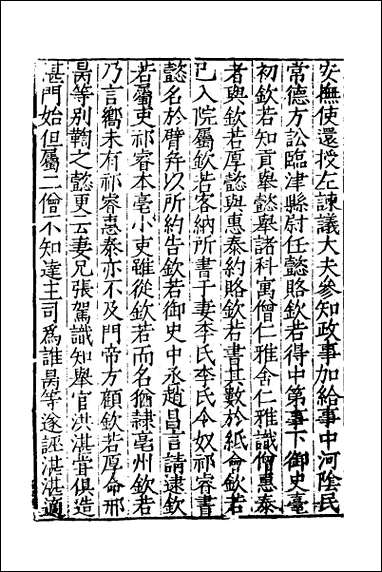 安撫使還授左諫議大夫參知政事加給事中河陰民
常德方訟臨津縣尉任懿賂欽若得中第事下御史臺
初欽若知貢舉懿舉諸科寓僧仁雅舍仁雅識僧惠秦
者與欽若厚懿與惠秦約賂欽若書其數於紙令欽若
已入院屬欽若客納所書于妻李氏李氏令奴祁睿書
懿名於臂并以所約告欽若御史中丞趙昌言請逮欽
若屬吏祁睿本亳小吏雖從欽若而名猶隷亳州欽若
乃言嚮未有祁睿惠秦亦不及門帝方顧欽若厚命邢
昺等別鞫之懿更云妻兄張駕識知舉官洪湛嘗俱造
湛門始但屬二僧不知達主司爲誰昺等遂誣湛湛適